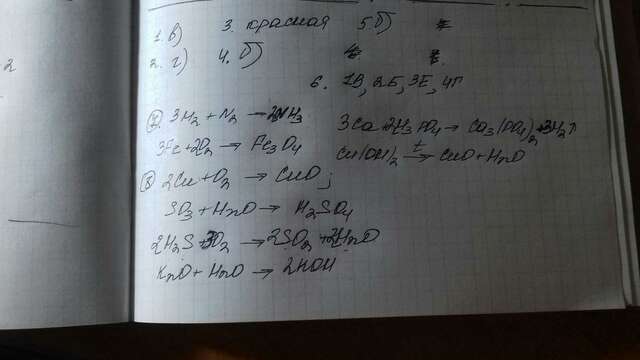 1. в) 3. красная 5. б)
2. г) 4. б)
6. 1В, 2Б, 3Е, 4Г
7) 3H₂ + N₂ → 2NH₃ 3Ca + 2H₃PO₄ → Ca₃(PO₄)₂ + 3H₂↑
3Fe + 2O₂ → Fe₃O₄ Cu(OH)₂ →t CuO + H₂O
8) 2Cu + O₂ → CuO;
SO₃ + H₂O → H₂SO₄
2H₂S + 3O₂ → 2SO₂ + 2H₂O
K₂O + H₂O → 2KOH
2